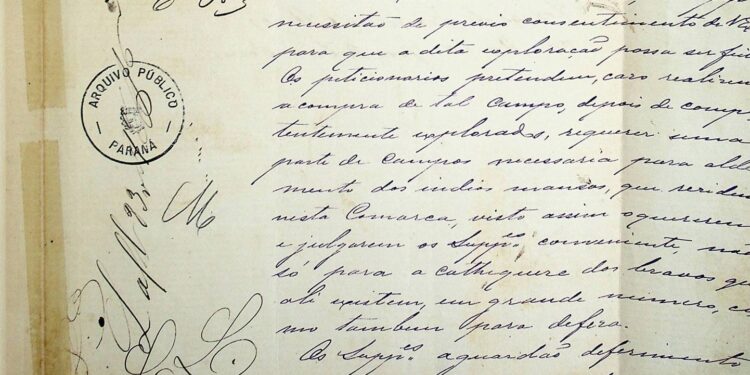 necessitão de previo consentimento de
para que a dita exploração possa ser
Os peticionarios pretendem, caso
a compra de tal Campo, depois de
tentemente explorado, requerer uma
parte de Campos necessaria para
mento dos indios mansos, que residem
nesta Comarca, visto assim o quererem
e julgarem os Supp.es conveniente,
só para a cathequese dos bravos
ali existem, em grande numero,
mo tambem para defeza.
Os Supp.es aguardão deferimento
ARQUIVO PÚBLICO
PARANÁ